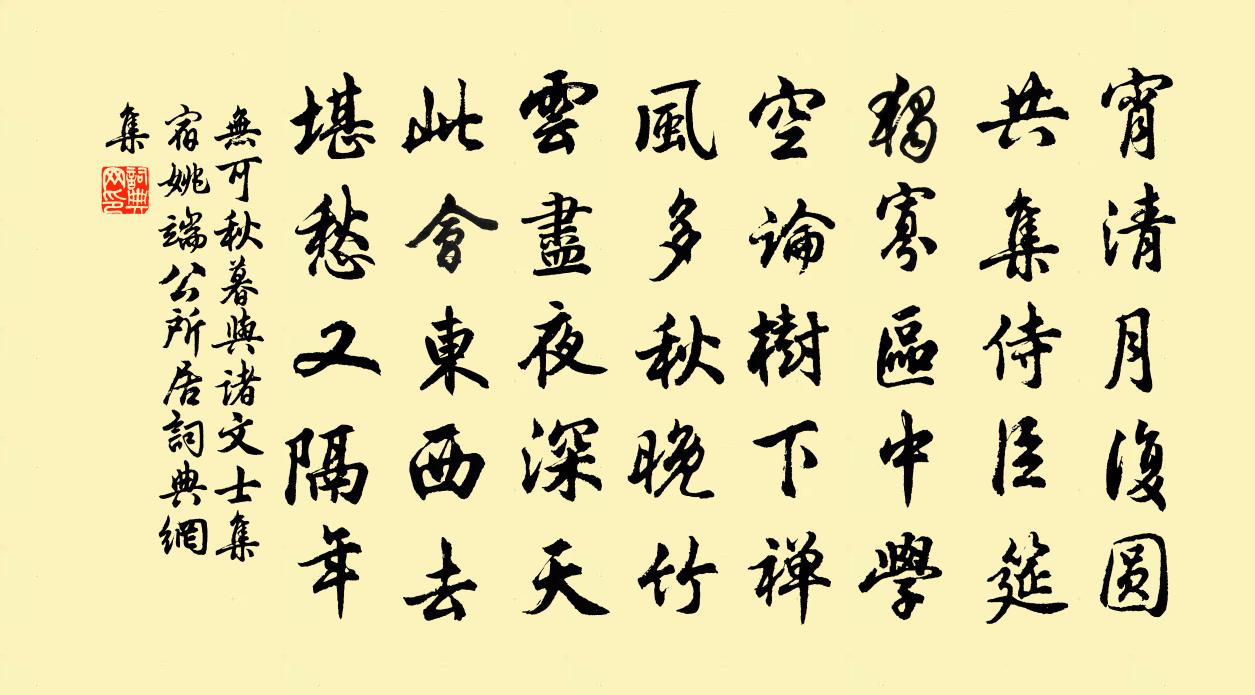 宵清月復圓
共集侍臣筵
獨寡區中學
空論樹下禅
風多秋晚竹
雲盡夜深天
此會東西去
堪愁又隔年
無可秋暮與诸文士集
宿姚端公所居詞典網
集
詞典
网印